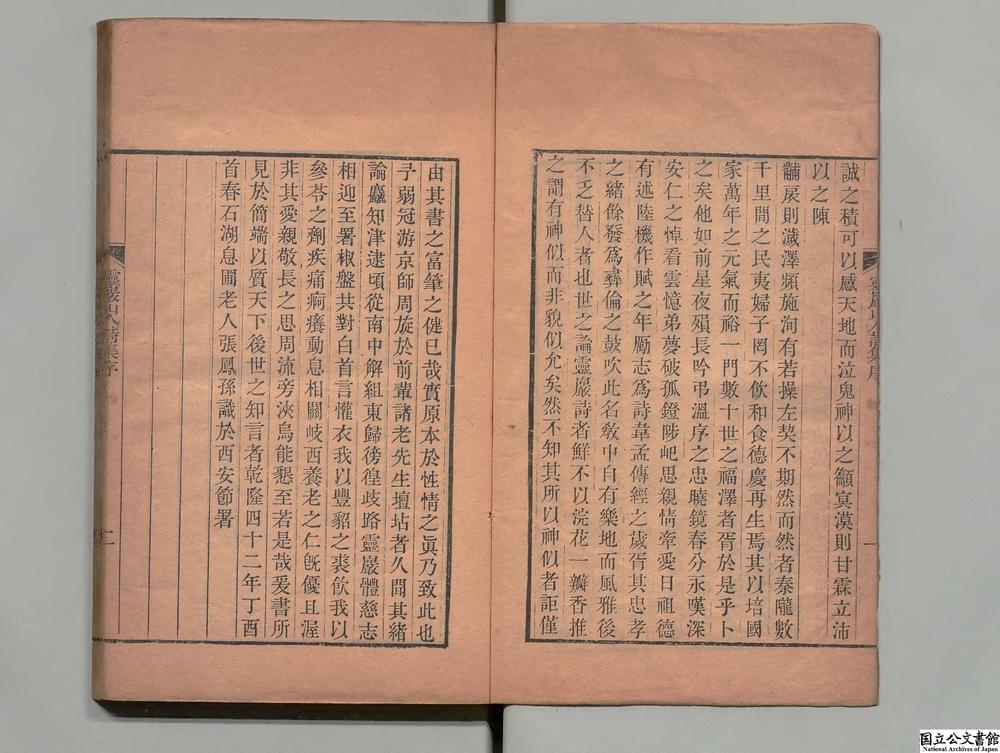 誠之積可以感天地而泣鬼神以之籲㝠漠則甘霖立沛
以之陳
黼扆則濊澤頻施洵有若操左契不期然而然者秦隴數
千里間之民夷婦子罔不飲和食德慶再生焉其以培國
家萬年之元氣而裕一門數十世之福澤者胥於是乎卜
之矣他如前星夜殞長吟弔溫序之忠曉鏡春分永嘆深
安仁之悼看雲憶弟夢破孤鐙陟屺思親情牽愛日祖德
有述陸機作賦之年勵志爲詩韋孟傳經之歲胥其忠孝
之緒餘發爲彝倫之鼓吹此名敎中自有樂地而風雅後
不乏替人者也世之論靈巖詩者鮮不以浣花一瓣香推
之謂有神似而非貌似允矣然不知其所以神似者詎僅
由其書之富筆之健已哉實原本於性情之眞乃致此也
予弱冠游京師周旋於前輩諸老先生壇坫者久聞其緒
論麤知津逮頃從南中解組東歸徬徨歧路靈巖體慈志
相迎至署椒盤共對白首言懽衣我以豐貂之裘飲我以
參苓之劑疾痛痾癢動息相關岐西養老之仁旣優且渥
非其愛親敬長之思周流旁浹烏能懇至若是哉爰書所
見於簡端以質天下後世之知言者乾隆四十二年丁酉
首春石湖息圃老人張鳳孫識於西安節署
靈巖山人詩集序
一
靈巖山人詩集序
二
国立公文書館
National Archives of Japan